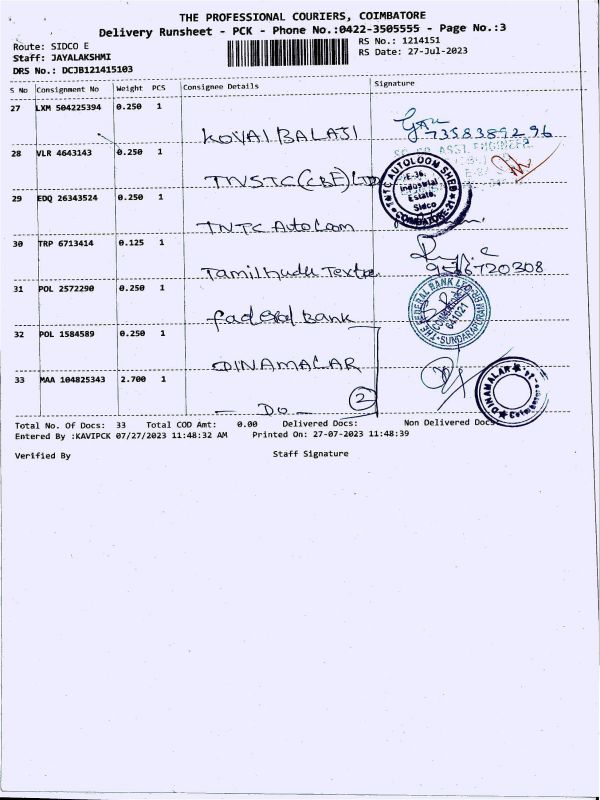 THE PROFESSIONAL COURIERS, COIMBATORE
Delivery Runsheet - PCK - Phone No.:0422-3505555 - Page No.:3
Route: SIDCO E
RS No.: 1214151
Staff: JAYALAKSHMI
RS Date: 27-Jul-2023
DRS No.: DCJB121415103
S No Consignment No Weight PCS Consignee Details Signature
27 LXM 504225394 0.250 1
KOVAI BALAJI 7358389296
28 VLR 4643143 0.250 1
TNSTC (CBE) LTD
ASST. ENGINEER
29 EDQ 26343524 0.250 1
TNTC Autoloom
TNTC AUTOLOOM SHED
E-36,
Industrial
Estate,
Sidco
COIMBATORE-21
30 TRP 6713414 0.125 1
Tamilnadu Textre 9566720308
31 POL 2572290 0.250 1
Faderal Bank
THE FEDERAL BANK LTD
COIMBATORE
641021
SUNDARAPURAM BR
32 POL 1584589 0.250 1
DINAMALAR
33 MAA 104825343 2.700 1
- Do - 2
DINAMALAR
Coimbatore
Total No. Of Docs: 33 Total COD Amt: 0.00 Delivered Docs: Non Delivered Docs
Entered By :KAVIPCK 07/27/2023 11:48:32 AM Printed On: 27-07-2023 11:48:39
Verified By Staff Signature